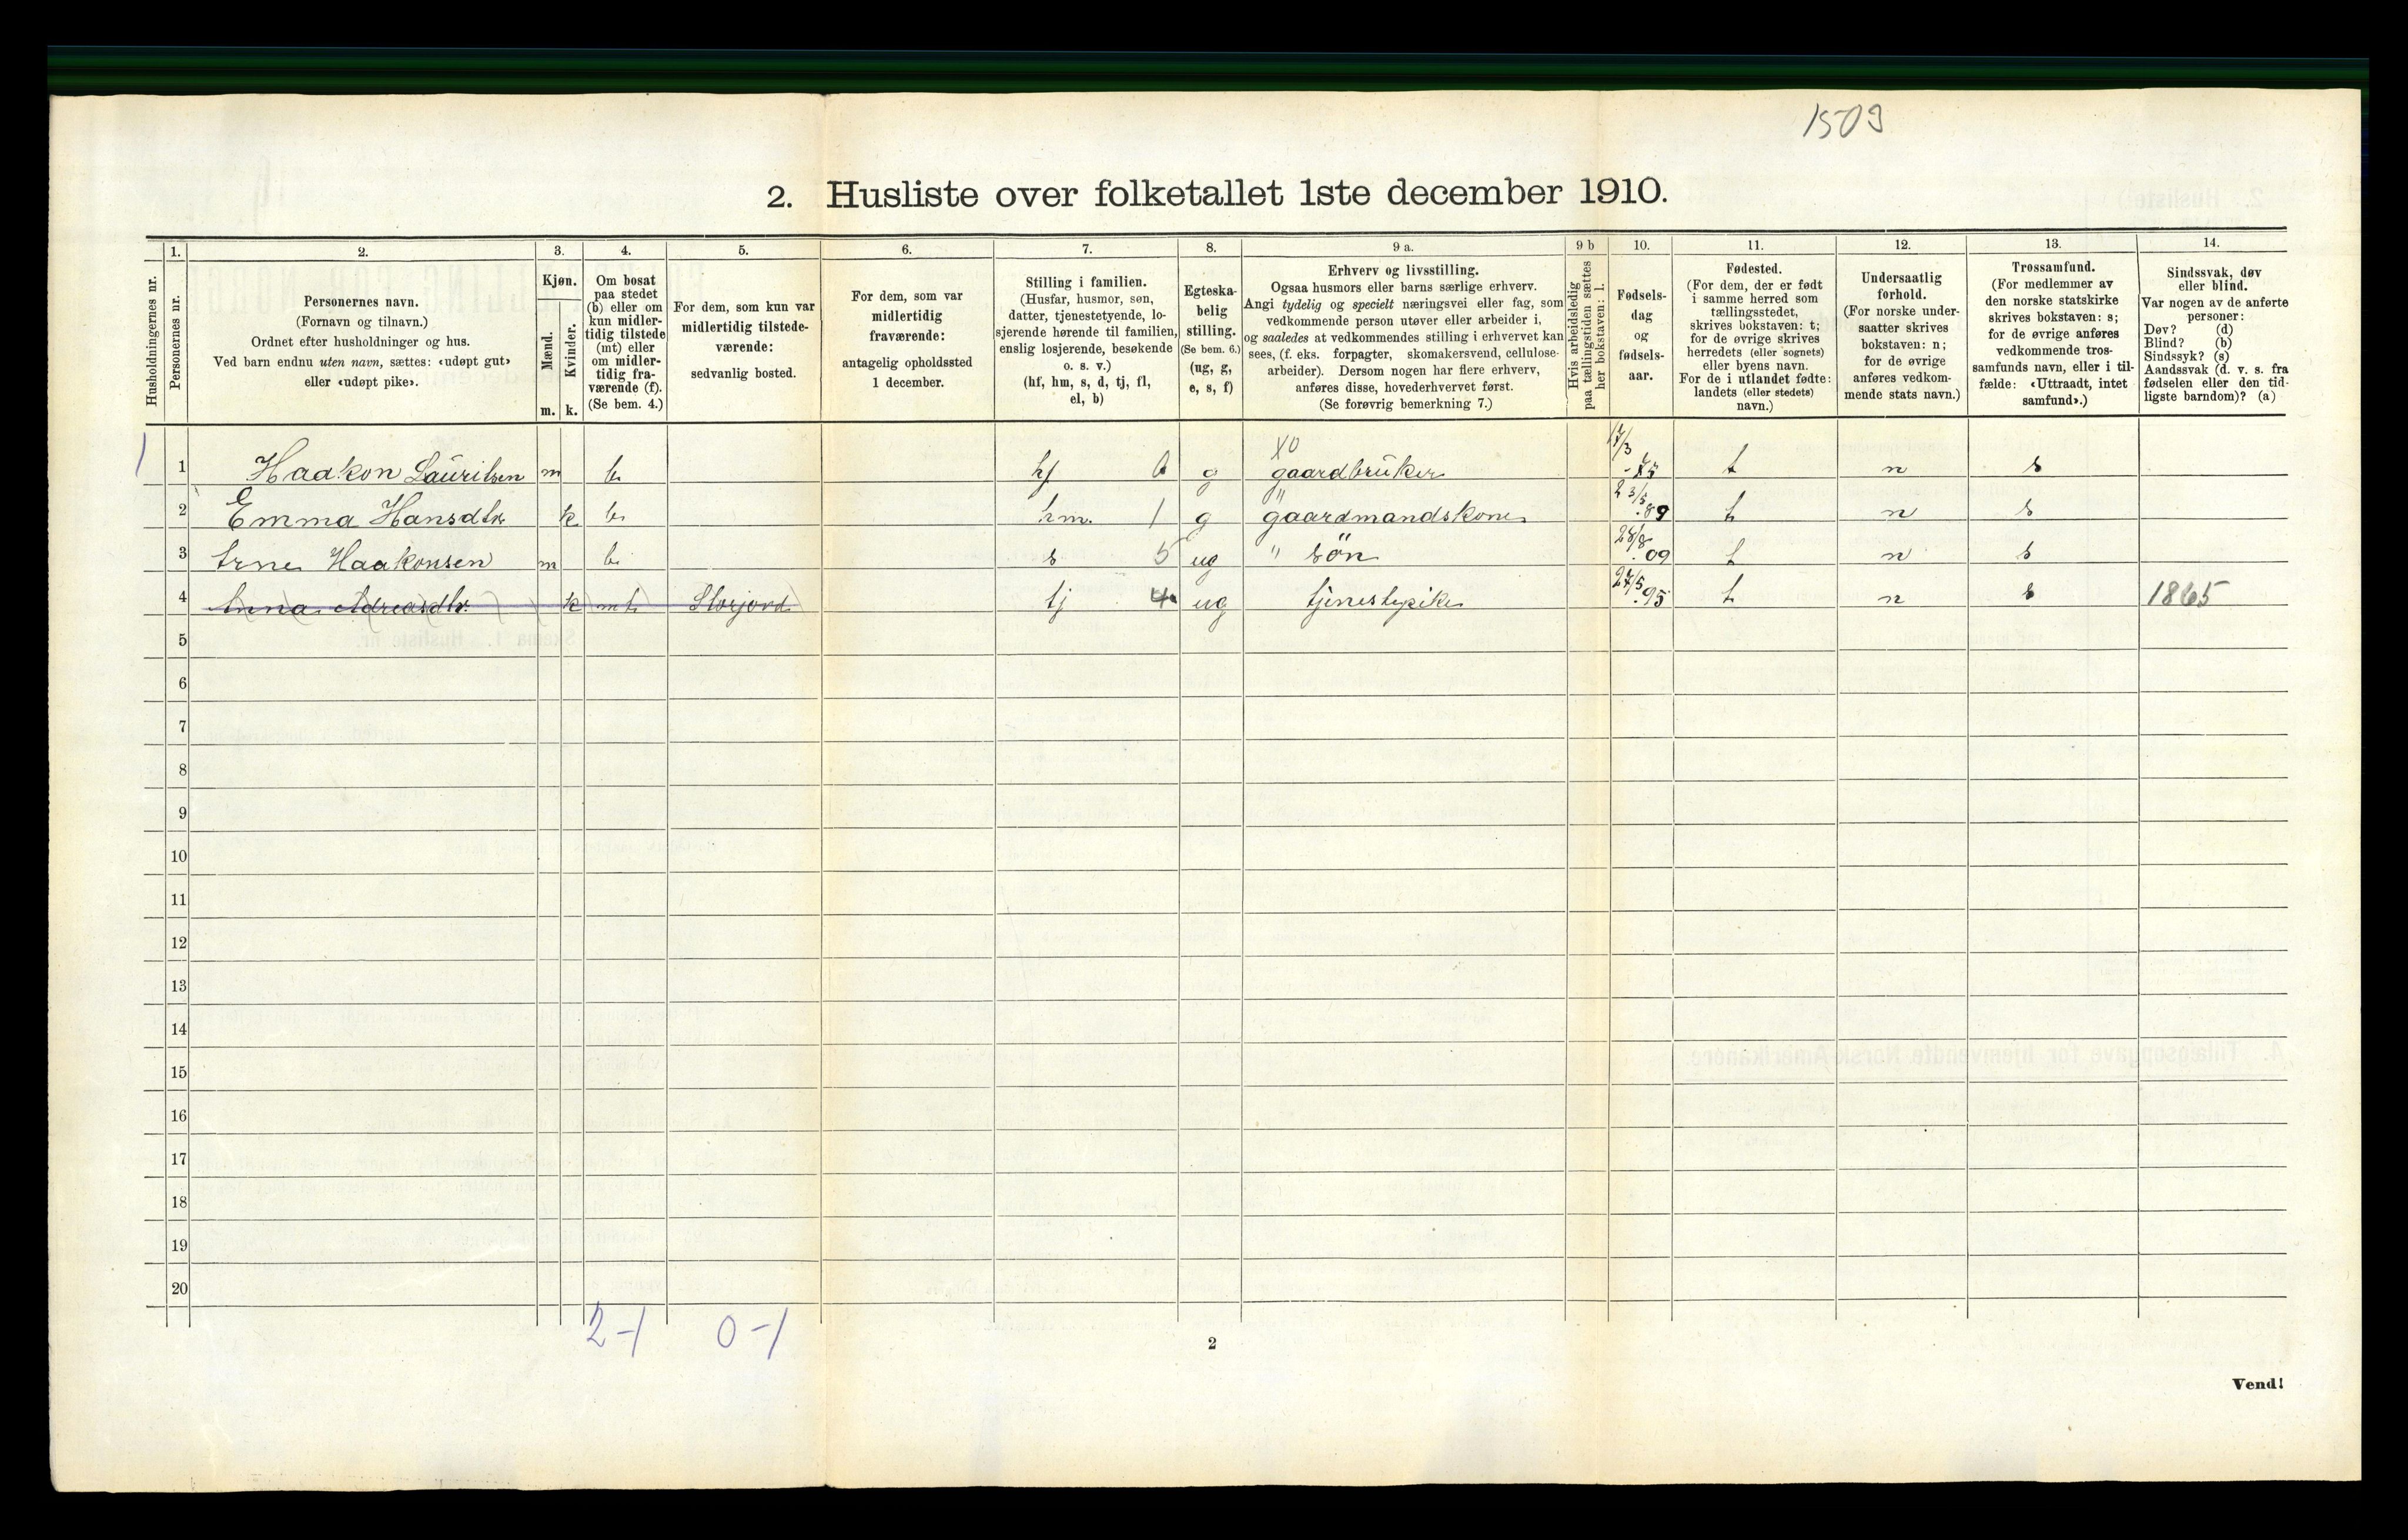 1503
2. Husliste over folketallet 1ste december 1910.
Husholdningernes nr.
1.
Personernes nr.
2.
Personernes navn.
(Fornavn og tilnavn.)
Ordnet efter husholdninger og hus.
Ved barn endnu uten navn, sættes: «udøpt gut»
eller «udøpt pike».
3.
Kjøn.
Mænd.
Kvinder.
m. k.
4.
Om bosat
paa stedet
(b) eller om
kun midler-
tidig tilstede
(mt) eller
om midler-
tidig fra-
værende (f).
(Se bem. 4.)
5.
For dem, som kun var
midlertidig tilstede-
værende:
sedvanlig bosted.
6.
For dem, som var
midlertidig
fraværende:
antagelig opholdssted
1 december.
7.
Stilling i familien.
(Husfar, husmor, søn,
datter, tjenestetyende, lo-
sjerende hørende til familien,
enslig losjerende, besøkende
o. s. v.)
(hf, hm, s, d, tj, fl,
el, b)
8.
Egteska-
belig
stilling.
(Se bem. 6.)
(ug, g,
e, s, f)
9 a.
Erhverv og livsstilling.
Ogsaa husmors eller barns særlige erhverv.
Angi tydelig og specielt næringsvei eller fag, som
vedkommende person utøver eller arbeider i,
og saaledes at vedkommendes stilling i erhvervet kan
sees, (f. eks. forpagter, skomakersvend, cellulose-
arbeider). Dersom nogen har flere erhverv,
anføres disse, hovederhvervet først.
(Se forøvrig bemerkning 7.)
9 b
Hvis arbeidsledig
paa tællingstiden sættes
her bokstaven: l.
10.
Fødsels-
dag
og
fødsels-
aar.
11.
Fødested.
(For dem, der er født
i samme herred som
tællingsstedet,
skrives bokstaven: t;
for de øvrige skrives
herredets (eller sognets)
eller byens navn.
For de i utlandet fødte:
landets (eller stedets)
navn.)
12.
Undersaatlig
forhold.
(For norske under-
saatter skrives
bokstaven: n;
for de øvrige
anføres vedkom-
mende stats navn.)
13.
Trossamfund.
(For medlemmer av
den norske statskirke
skrives bokstaven: s;
for de øvrige anføres
vedkommende tros-
samfunds navn, eller i til-
fælde: «Uttraadt, intet
samfund».)
14.
Sindssvak, døv
eller blind.
Var nogen av de anførte
personer:
Døv? (d)
Blind? (b)
Sindssyk? (s)
Aandssvak (d. v. s. fra
fødselen eller den tid-
ligste barndom)? (a)
X0
1 1 Haakon Lauritsen m b hf g gaardbruker 17/3 -75 t n s
2 Emma Hansdtr k b hm. 1 g gaardmandskone 23/5 .89 t n s
3 Arne Haakonsen m b s 5 ug " søn 28/8 .09 t n s
4 Anna Adreasdtr. k mt Storjord tj 4 ug tjenestepike 27/5 .95 t n s 1865
5
6
7
8
9
10
11
12
13
14
15
16
17
18
19
20
2-1 0-1
2
Vend!